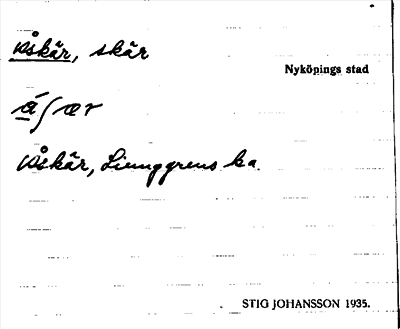 Åskär, skär
Nyköpings stad
Åskär, Ljunggrens ka.
STIG JOHANSSON 1935.